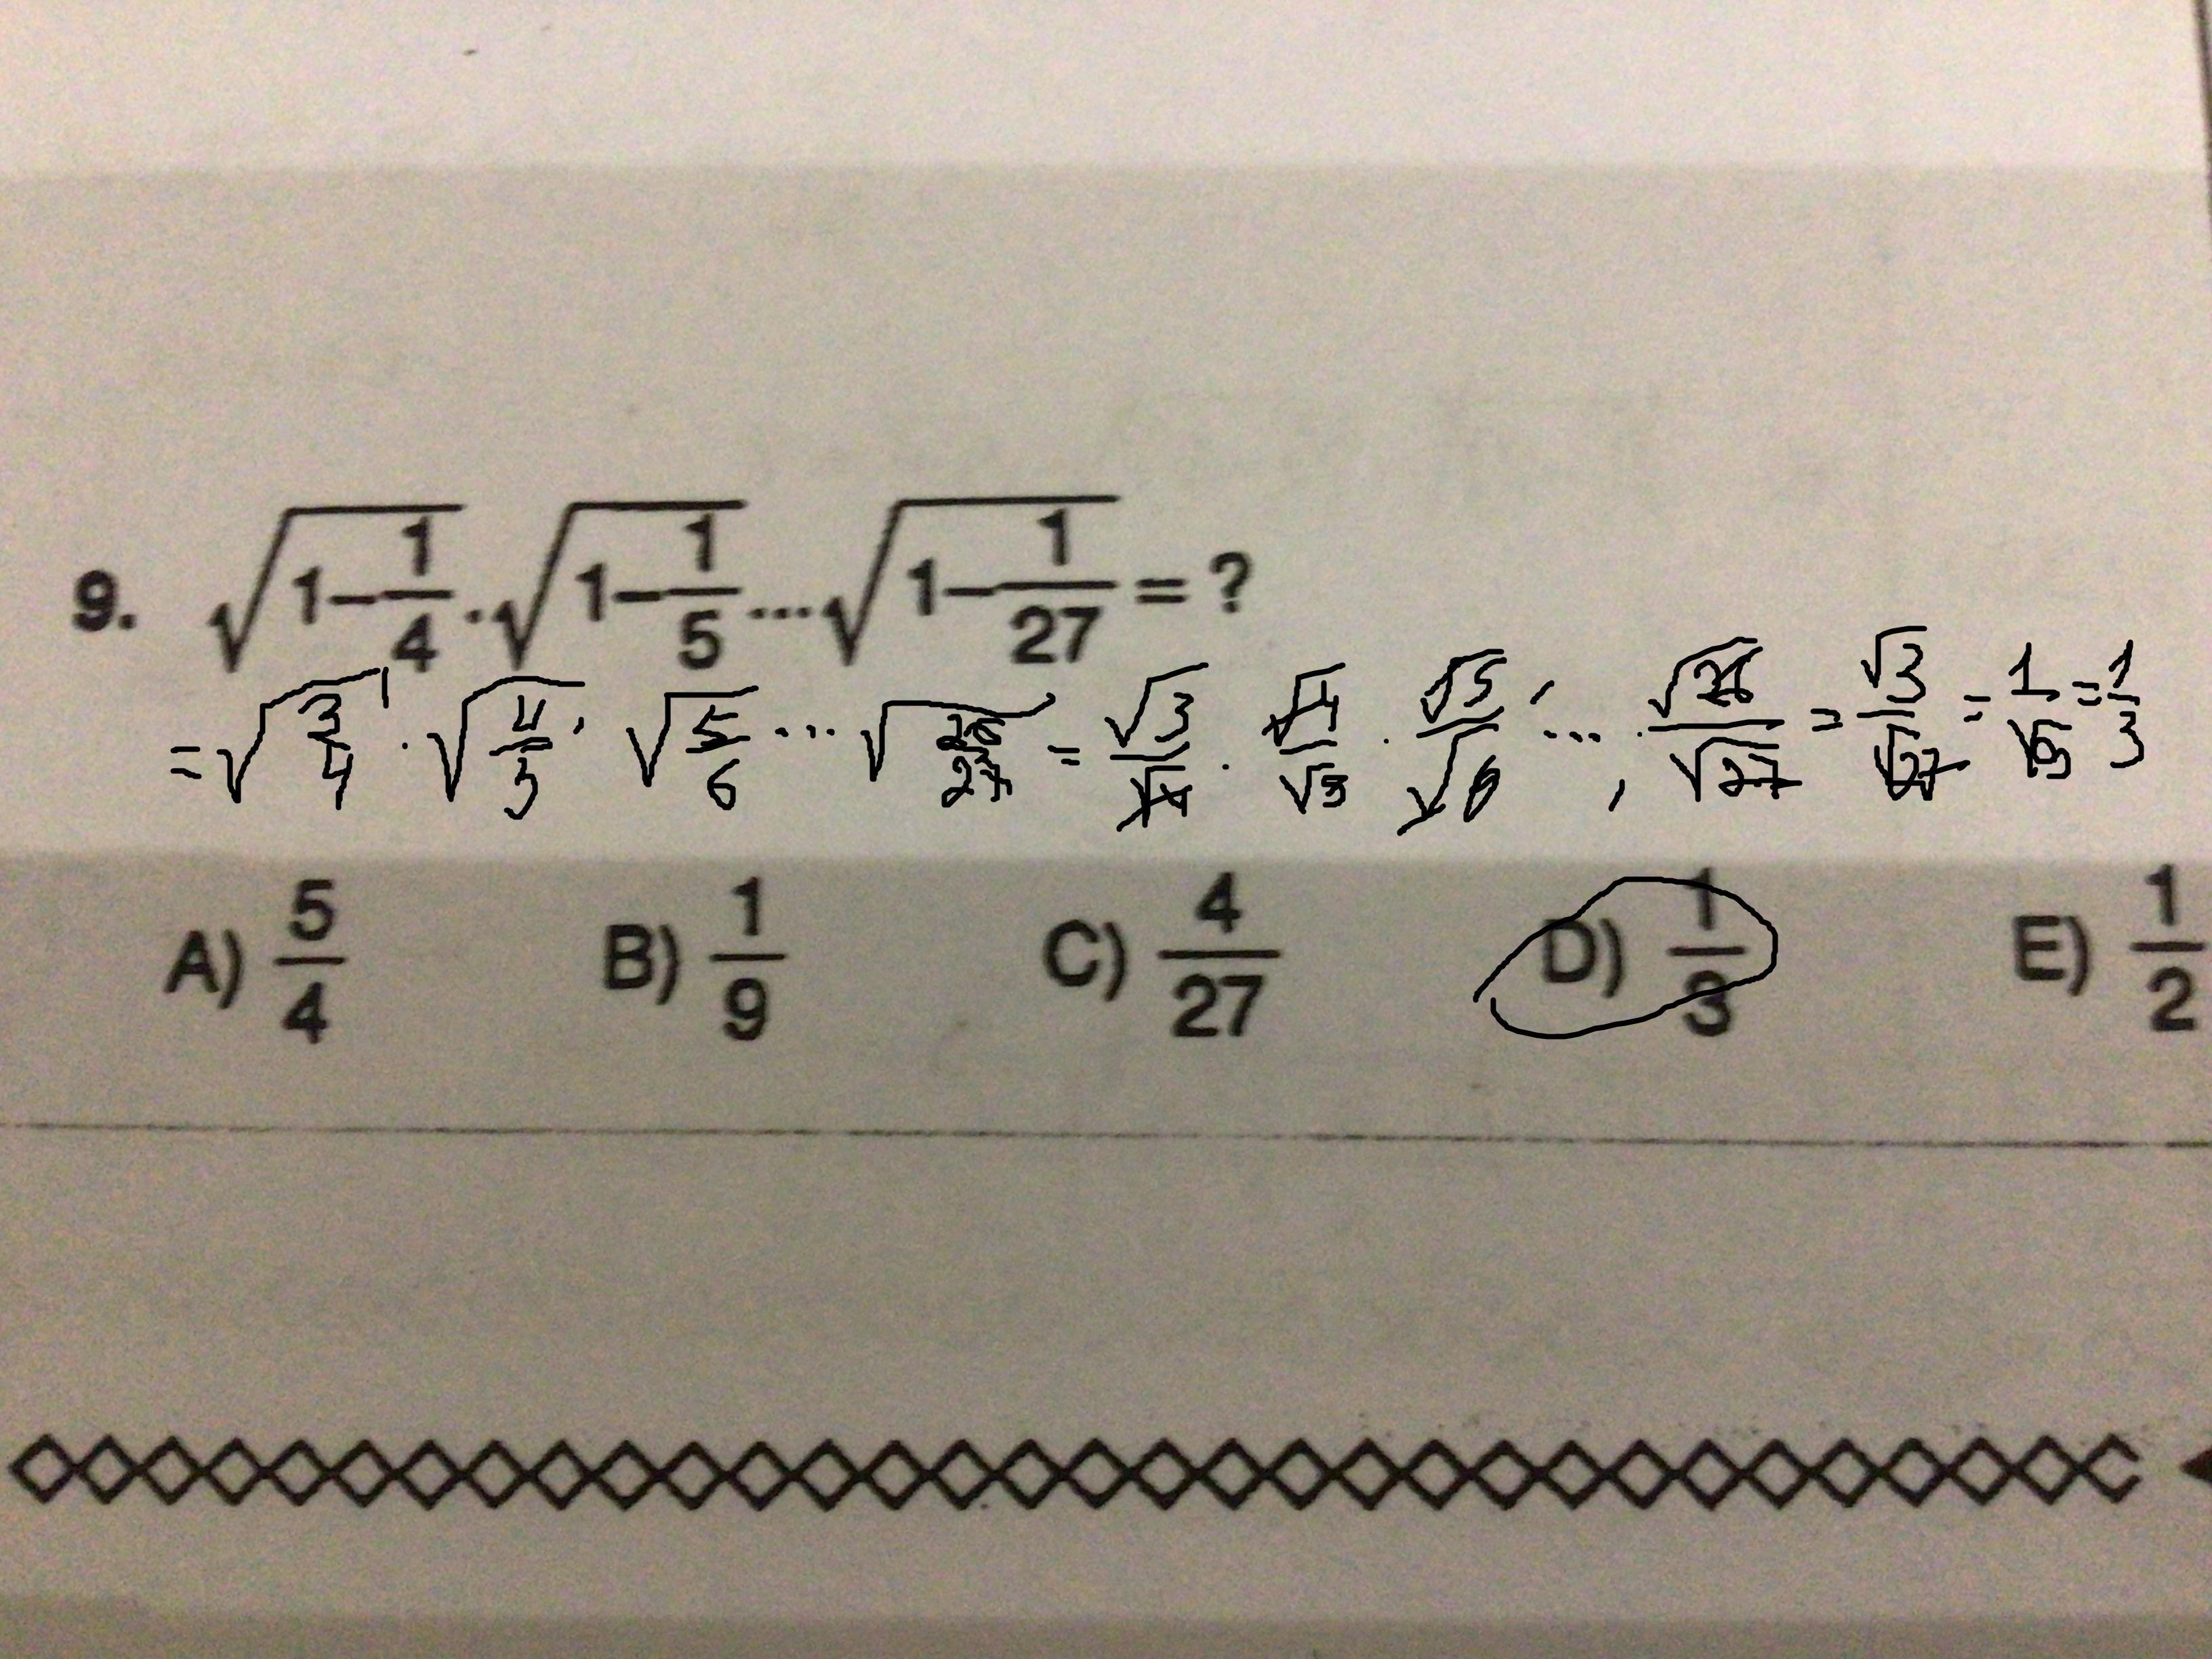 9. √(1-1/4) . √(1-1/5) ... √(1-1/27) = ?
= √(3/4) . √(4/5) . √(5/6) ... √(26/27) = √3/√4 . √4/√5 . √5/√6 . ... . √26/√27 = √3/√27 = 1/√9 = 1/3
A) 5/4 B) 1/9 C) 4/27 D) 1/3 E) 1/2